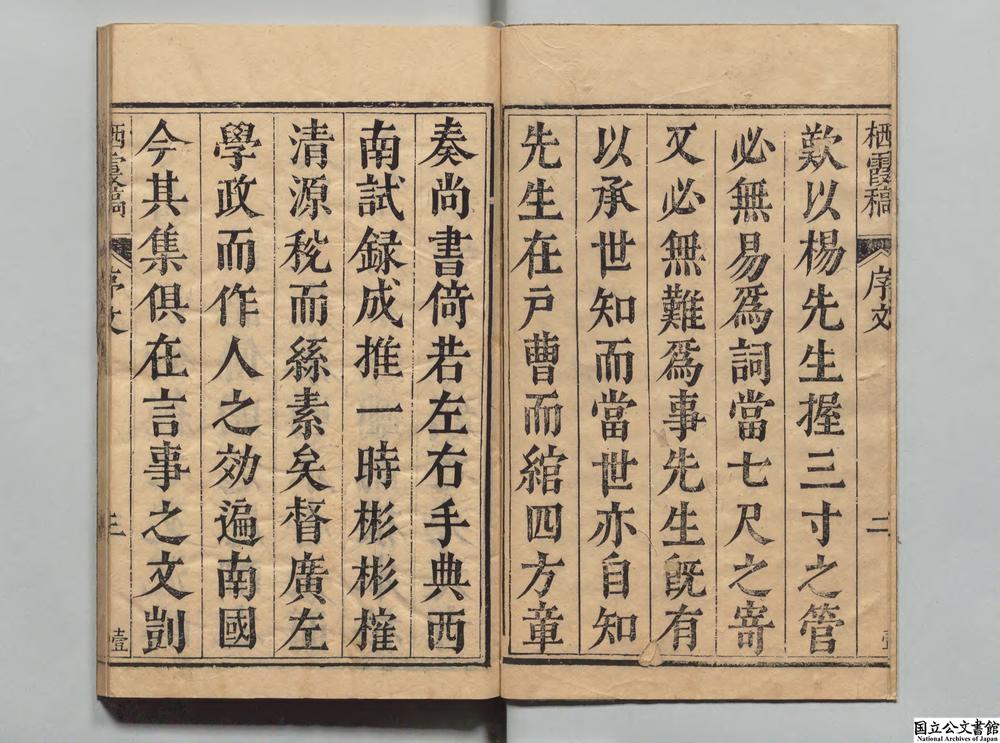 栖霞稿
序文
二
壹
歎以楊先生握三寸之管
必無易爲詞當七尺之寄
又必無難爲事先生旣有
以承世知而當世亦自知
先生在戸曹而綰四方章
奏尚書倚若左右手典西
南試録成推一時彬彬榷
清源稅而絲素矣督廣左
學政而作人之効遍南國
今其集俱在言事之文剴
栖霞稿
序文
三
壹
国立公文書館
National Archives of Japan